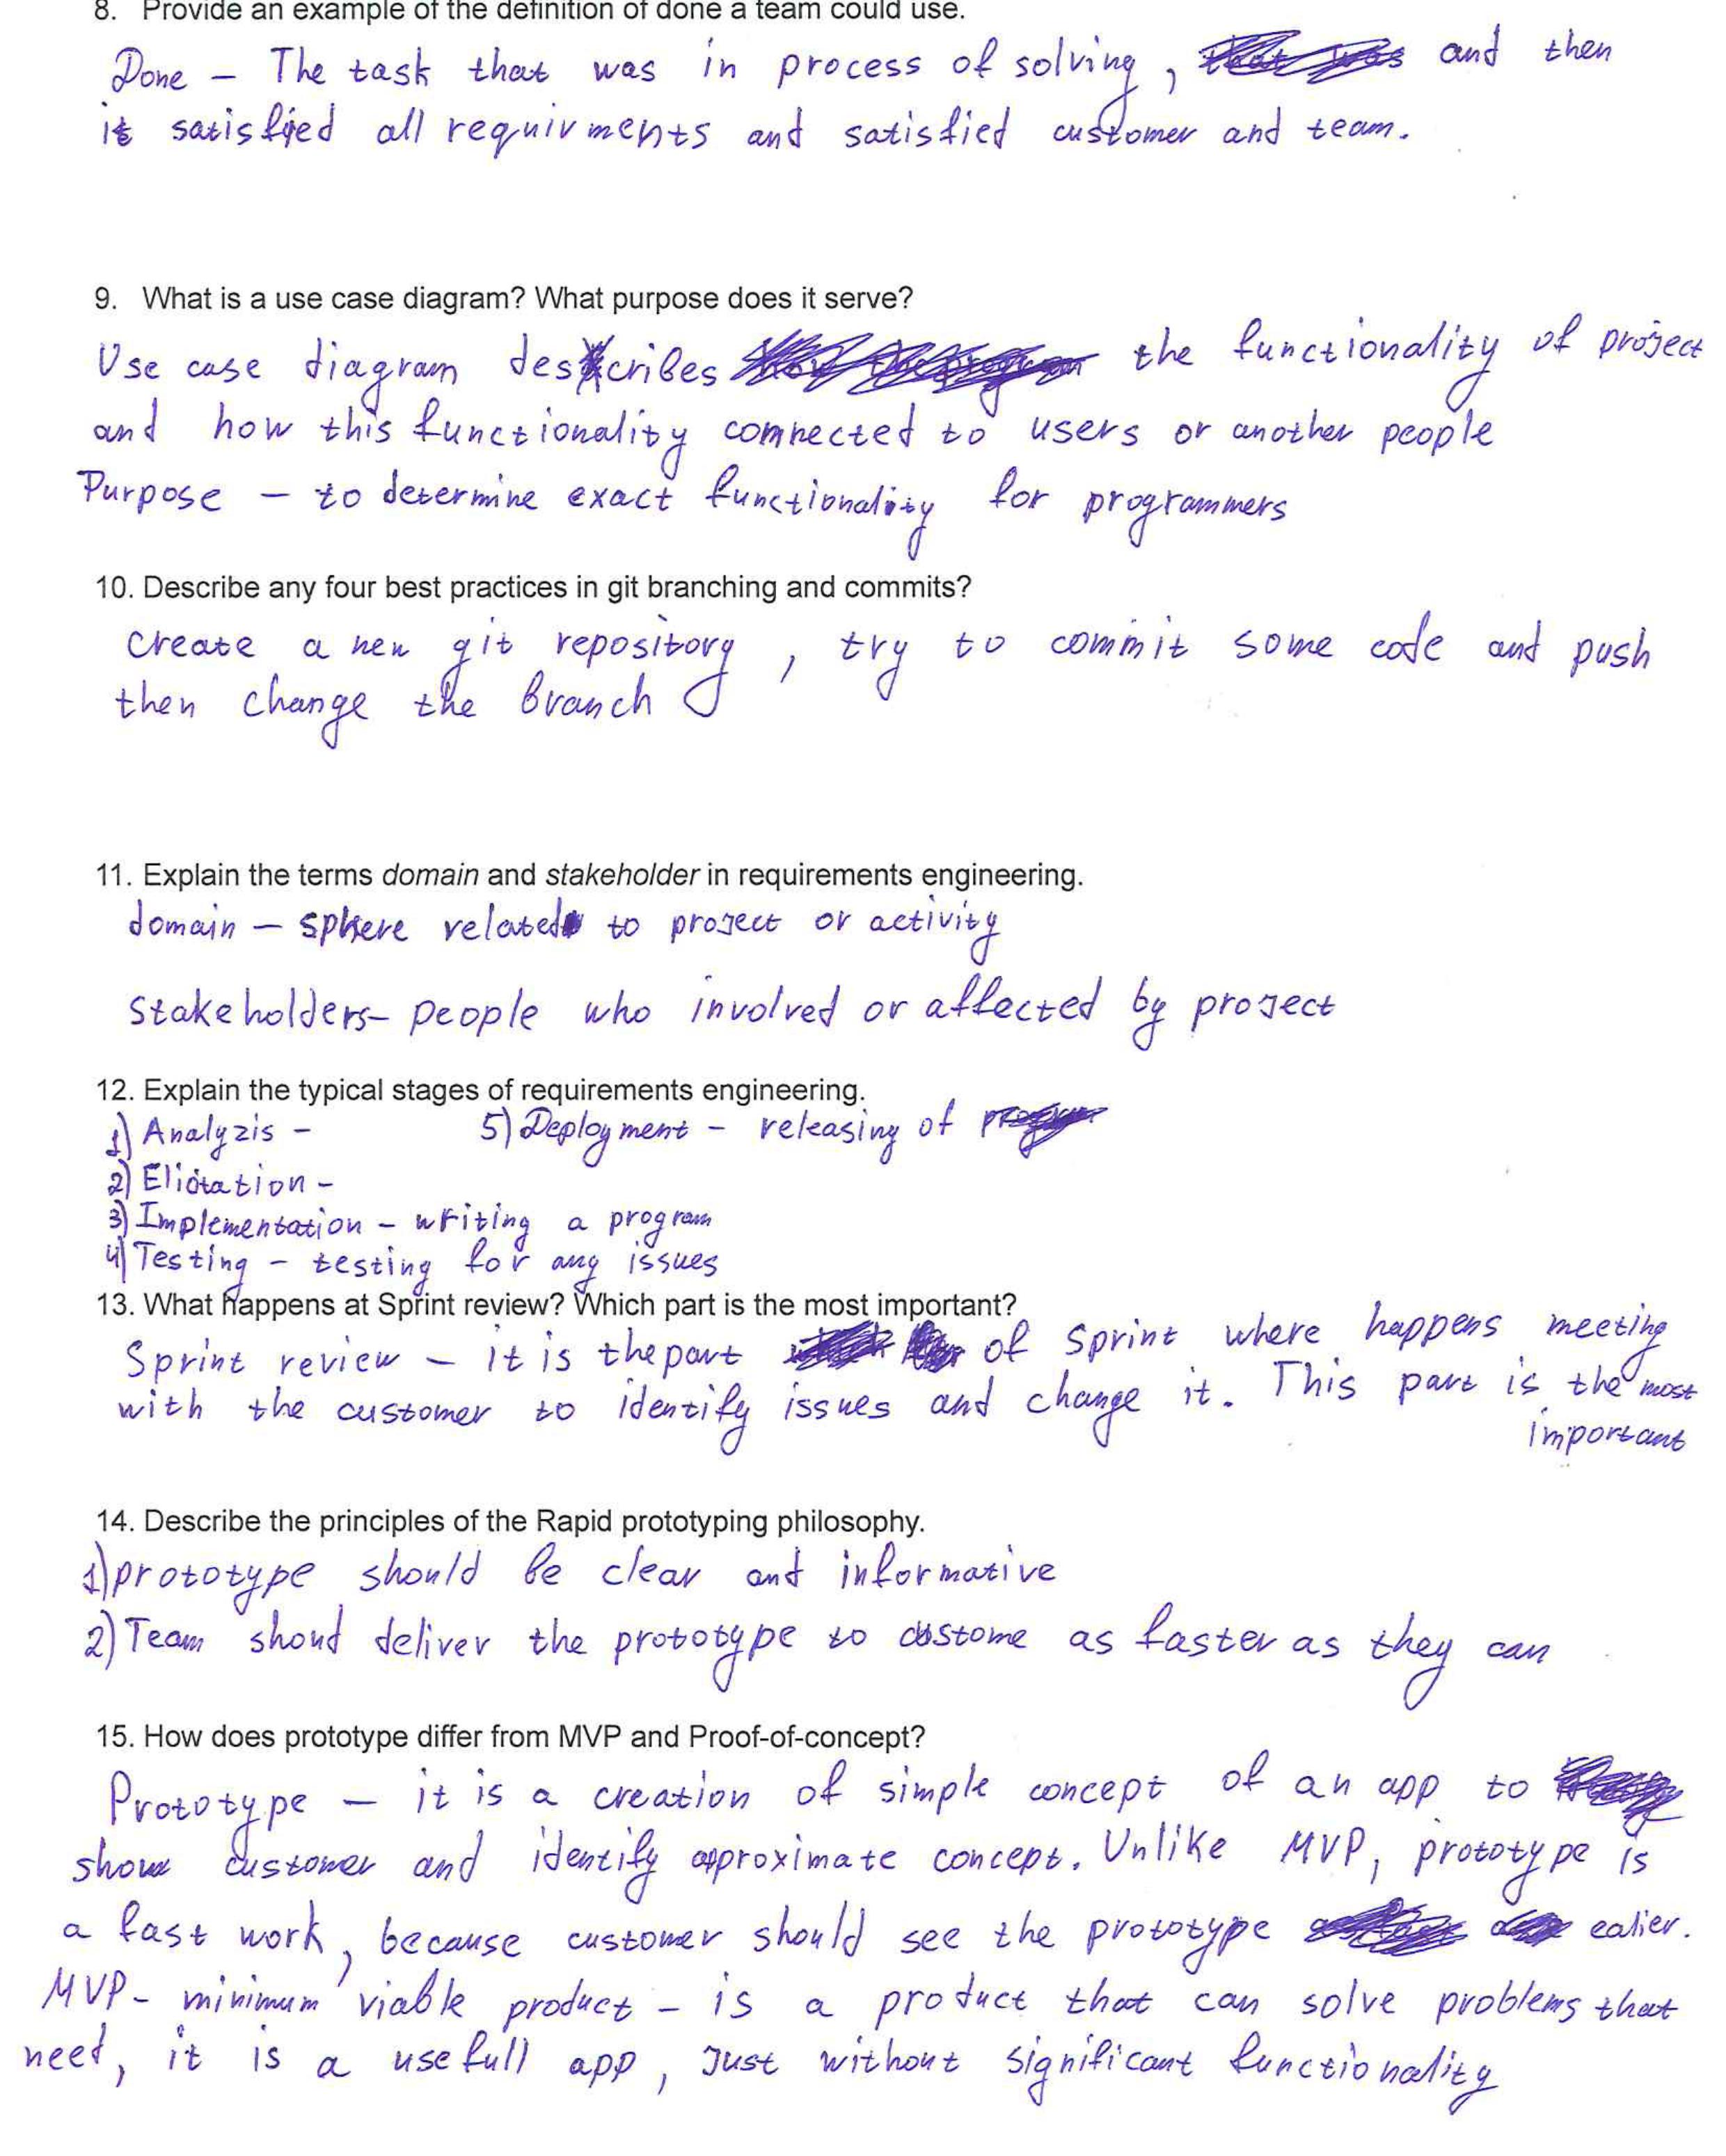 8. Provide an example of the definition of done a team could use.
Done – The task that was in process of solving, and then
it satisfied all requirments and satisfied customer and team.
9. What is a use case diagram? What purpose does it serve?
Use case diagram describes the functionality of project
and how this functionality connected to users or another people
Purpose – to determine exact functionality for programmers
10. Describe any four best practices in git branching and commits?
Create a new git repository, try to commit some code and push
then change the branch
11. Explain the terms domain and stakeholder in requirements engineering.
domain – sphere related to project or activity
stakeholders – people who involved or affected by project
12. Explain the typical stages of requirements engineering.
1) Analyzis –
5) Deployment – releasing of
2) Elicitation –
3) Implementation – writing a program
4) Testing – testing for any issues
13. What happens at Sprint review? Which part is the most important?
Sprint review – it is the part of sprint where happens meeting
with the customer to identify issues and change it. This part is the most
important
14. Describe the principles of the Rapid prototyping philosophy.
1) prototype should be clear and informative
2) Team shoud deliver the prototype to custome as faster as they can
15. How does prototype differ from MVP and Proof-of-concept?
Prototype – it is a creation of simple concept of an app to
show customer and identify approximate concept. Unlike MVP, prototype is
a fast work, because customer should see the prototype ealier.
MVP – minimum viable product – is a product that can solve problems that
need, it is a usefull app, just without significant functionality